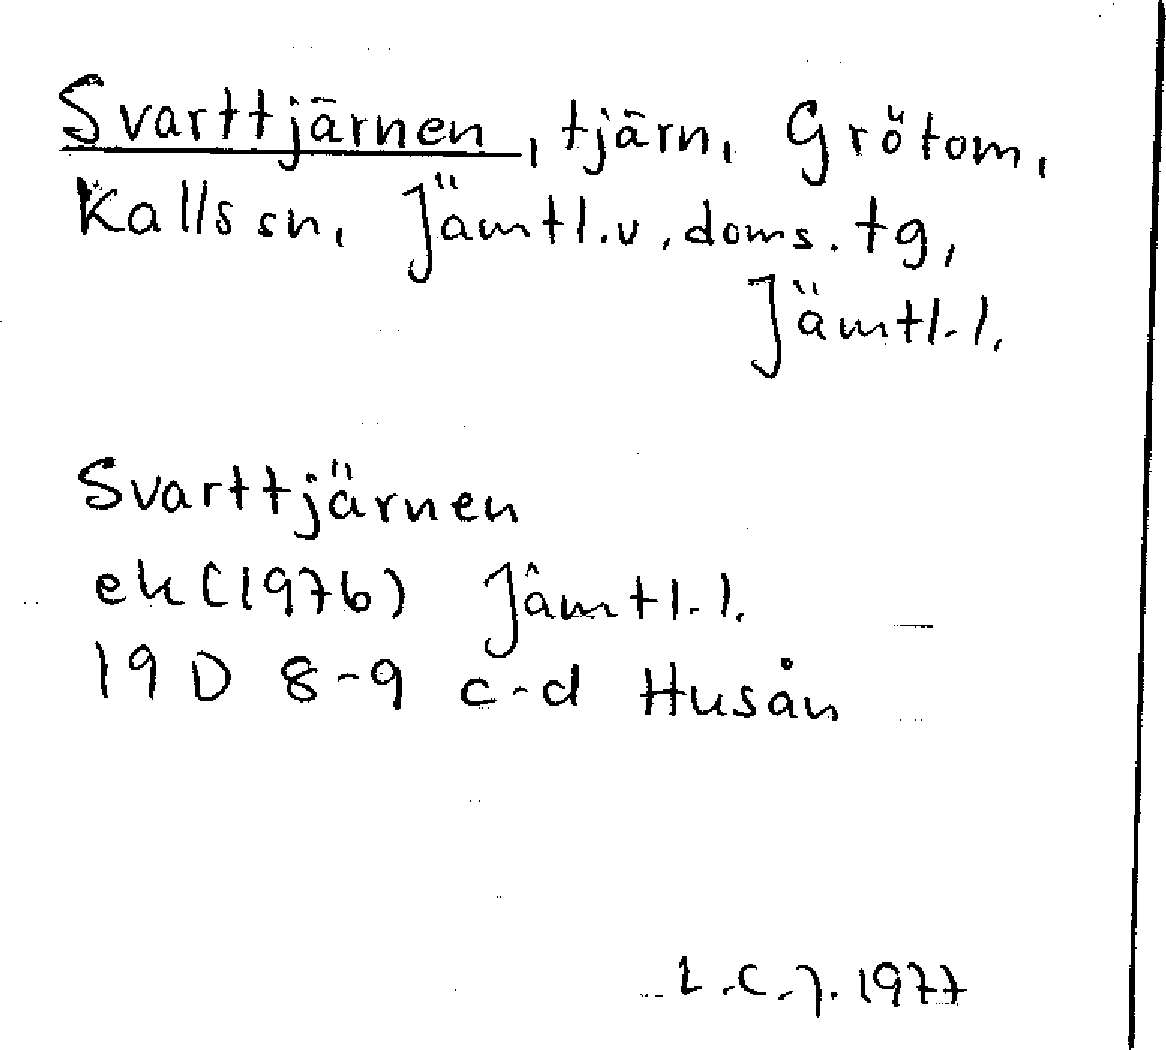 Svarttjärnen, tjärn, Grötom,
Kalls sn, Jämtl.v. doms. tg,
Jämtl. l.
Svarttjärnen
ek (1976) Jämtl. l.
19 D 8-9 c-d Husån
1977